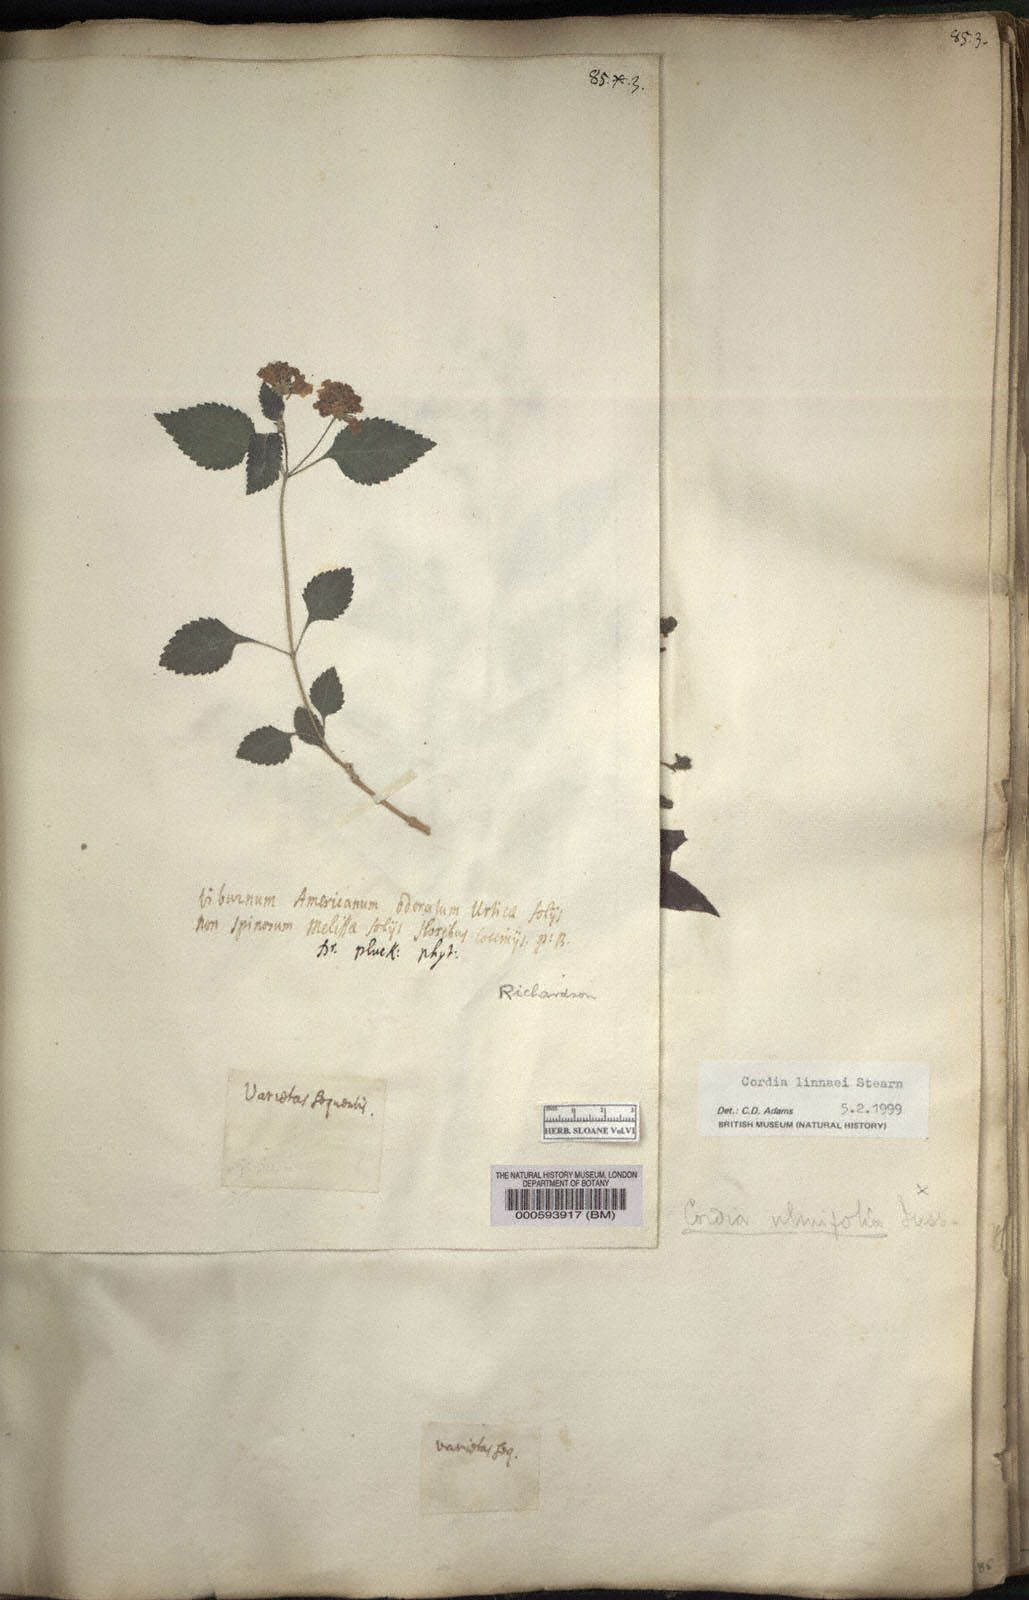 85.3.
85.*.3.
Viburnum Americanum odoratum Urticæ folijs
non spinosum Melissæ folijs floribus
Dr. pluck: phyt:
Richardson
Varietas sequentis.
HERB. SLOANE Vol.VI
THE NATURAL HISTORY MUSEUM, LONDON
DEPARTMENT OF BOTANY
000593917 (BM)
Cordia linnaei Stearn
Det.: C.D. Adams 5.2.1999
BRITISH MUSEUM (NATURAL HISTORY)
x
Cordia ulmifolia Juss.
varietas seq.